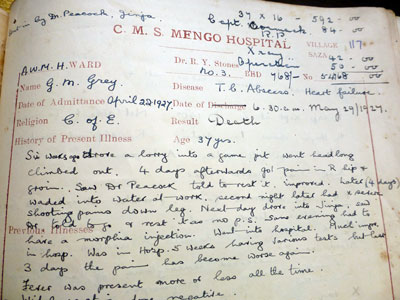 by Dr. Peacock, Jinja.
37 x 16 - 592 . 00
Sept. 84 . 00
R.P.
C. M. S. MENGO HOSPITAL
VILLAGE 117
Xray
SAZA 42 . 00
A.W.M.H. WARD
Dr. R. Y. Stones Operation 50 . 00
No. 3. BED 768 No 51268 . 00
Name G. M. Grey.
Disease T.b. Abscess, Heart failure.
Date of Admittance April 22 1927.
Date of Discharge 6.30 a.m. May 29/1927.
Religion C. of E.
Result Death
History of Present Illness
Age 37 yrs.
Six weeks ago drove a lorry into a game pit went headlong
climbed out. 4 days afterwards got pain in R hip &
groin. Saw Dr Peacock told to rest it, improved. Later (4 days)
waded into water at work, second night later had x severe
shooting pains down leg. Next day drove into Jinja, saw
Dr & go & rest it as no P.S. Same evening had to
Previous Illnesses
have a morphia injection. Went into hospital. Much improved
in hosp. Was in Hosp. 5 weeks having various tests but last
3 days the pain has become worse again.
Fever was present more or less all the time.
negative.